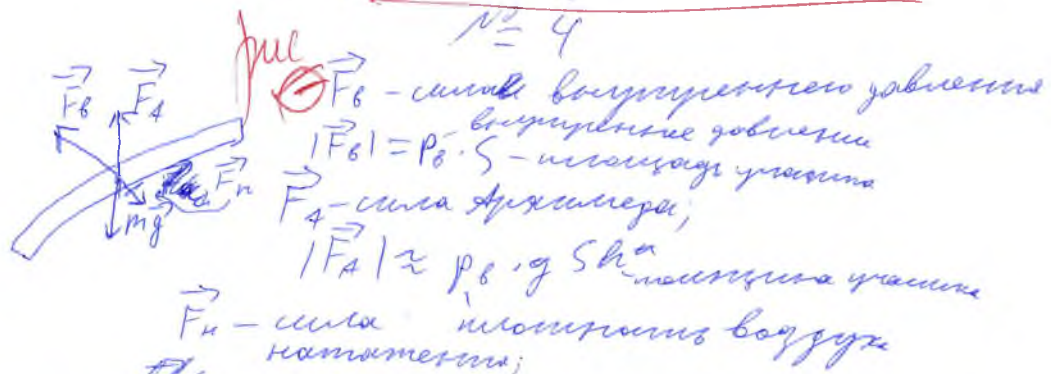 № 4
рис
F_в F_A
F_в - сила внутреннего давления
внутреннее давление
|F_в| = p_в · S - площадь участка
F_н
mg
F_A - сила Архимеда;
|F_A| ≈ ρ_в · g S h - толщина участка
плотность воздуха
F_н - сила
натяжения;